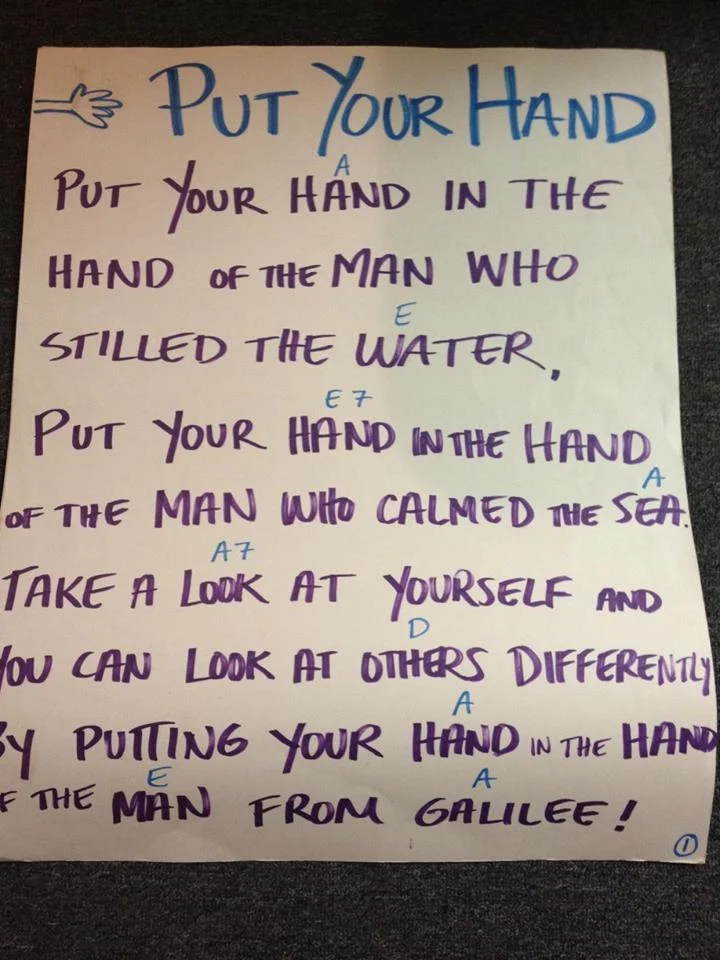 PUT YOUR HAND
A
PUT YOUR HAND IN THE
HAND OF THE MAN WHO
E
STILLED THE WATER,
E7
PUT YOUR HAND IN THE HAND
A
OF THE MAN WHO CALMED THE SEA.
A7
TAKE A LOOK AT YOURSELF AND
D
YOU CAN LOOK AT OTHERS DIFFERENTLY
A
BY PUTTING YOUR HAND IN THE HAND
E A
F THE MAN FROM GALILEE!
1